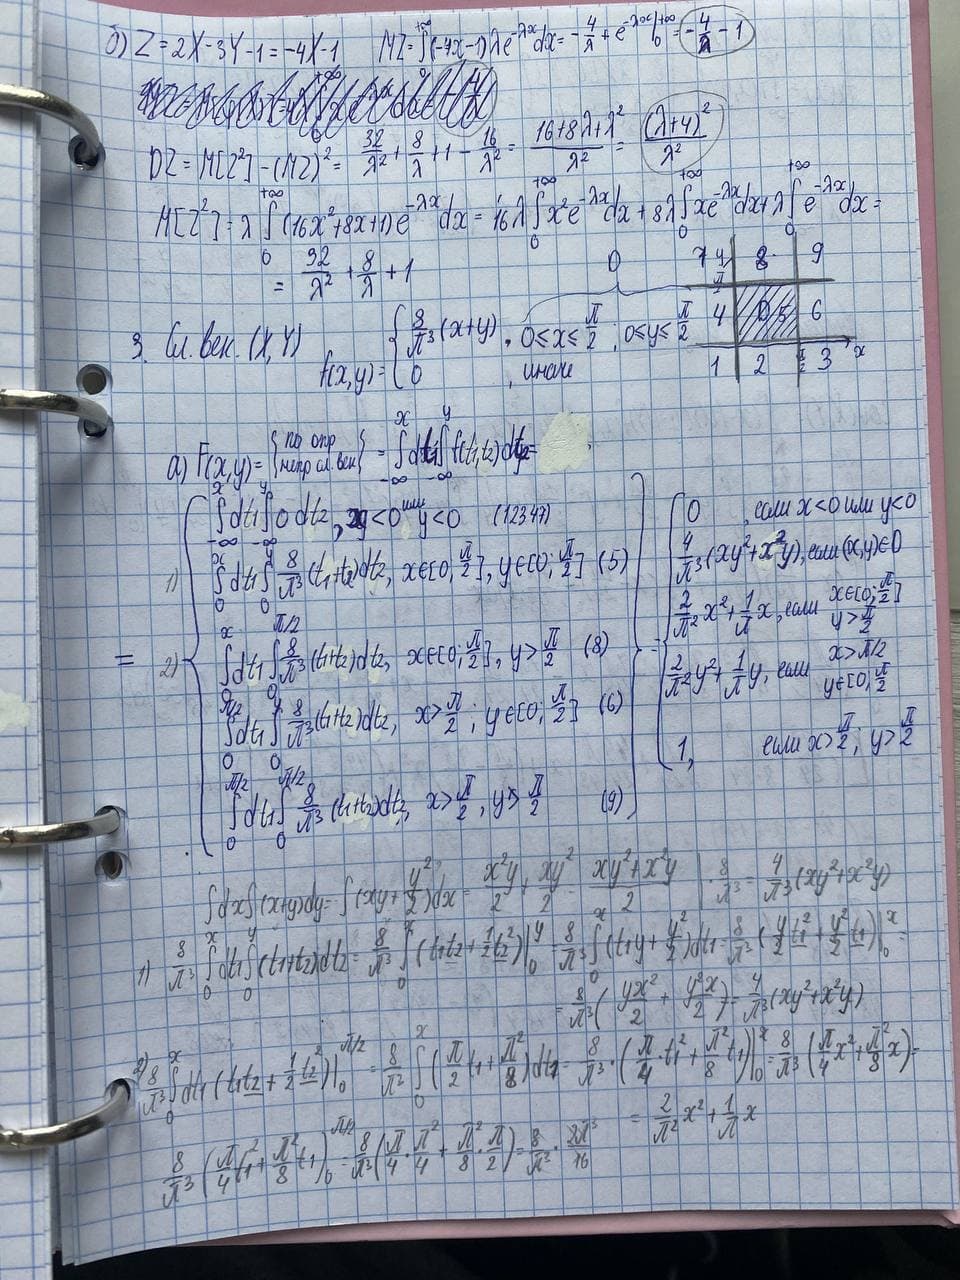 б) Z = 2X - 3Y - 1 = -4X - 1   MZ = ∫₀^{+∞} (-4x-1) λe^{-λx} dx = -4/λ + e^{-λx}|₀^{+∞} = -4/λ - 1
DZ = M[Z²] - (MZ)² = 32/λ² + 8/λ + 1 - 16/λ² = (16+8λ+λ²)/λ² = (λ+4)²/λ²
M[Z²] = λ ∫₀^{+∞} (16x²+8x+1) e^{-λx} dx = 16λ ∫₀^{+∞} x² e^{-λx} dx + 8λ ∫₀^{+∞} x e^{-λx} dx + λ ∫₀^{+∞} e^{-λx} dx =
= 32/λ² + 8/λ + 1
D
7 y 8 9
π/2
4 D 5 6
1 2 π/2 3 x
3. Сл. век. (X, Y)   f(x,y) = { 8/π³ (x+y), 0≤x≤π/2 ; 0≤y≤π/2
0 , иначе
а) F(x,y) = {по опр непр сл. век} = ∫_{-∞}^{x} dt₁ ∫_{-∞}^{y} f(t₁,t₂) dt₂ =
∫_{-∞}^{x} dt₁ ∫_{-∞}^{y} 0 dt₂, x<0 или y<0 (12347)
1) ∫₀^{x} dt₁ ∫₀^{y} 8/π³ (t₁+t₂) dt₂, x∈[0; π/2], y∈[0; π/2] (5)
= 2) ∫₀^{x} dt₁ ∫₀^{π/2} 8/π³ (t₁+t₂) dt₂, x∈[0; π/2], y>π/2 (8)
∫₀^{π/2} dt₁ ∫₀^{y} 8/π³ (t₁+t₂) dt₂, x>π/2 ; y∈[0; π/2] (6)
∫₀^{π/2} dt₁ ∫₀^{π/2} 8/π³ (t₁+t₂) dt₂, x>π/2, y>π/2 (9)
= { 0 , если x<0 или y<0
4/π³ (xy²+x²y), если (x,y)∈D
2/π² x² + 1/π x, если x∈[0; π/2] y>π/2
2/π² y² + 1/π y, если x>π/2 y∈[0; π/2
1, если x>π/2 ; y>π/2
∫dx∫(x+y)dy = ∫(xy + y²/2)dx = x²y/2 + xy²/2 = (xy²+x²y)/2 | · 8/π³ = 4/π³ (xy²+x²y)
1) 8/π³ ∫₀^{x} dt₁ ∫₀^{y} (t₁+t₂) dt₂ = 8/π³ ∫₀^{x} (t₁t₂ + 1/2 t₂²)|₀^{y} = 8/π³ ∫₀^{x} (t₁y + y²/2) dt₁ = 8/π³ (y/2 t₁² + y²/2 t₁)|₀^{x} =
= 8/π³ (yx²/2 + y²x/2) = 4/π³ (xy²+x²y)
2) 8/π³ ∫₀^{x} dt₁ (t₁t₂ + 1/2 t₂²)|₀^{π/2} = 8/π³ ∫₀^{x} (π/2 t₁ + π²/8) dt₁ = 8/π³ · (π/4 · t₁² + π²/8 t₁)|₀^{x} = 8/π³ (π/4 x² + π²/8 x) =
= 2/π² x² + 1/π x
8/π³ (π/4 t₁² + π²/8 t₁)₀^{π/2} = 8/π³ (π/4 · π²/4 + π²/8 · π/2) = 8/π³ · 2π³/16